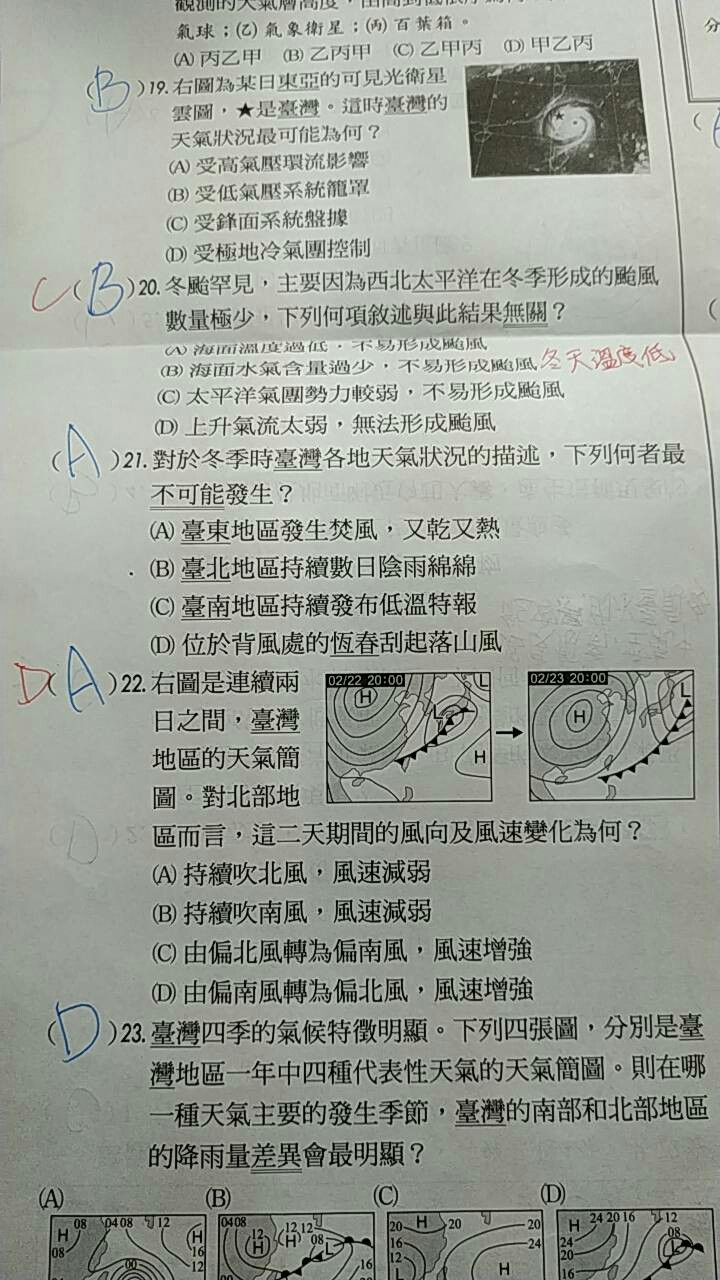 觀測的天氣層高度，由高到低依序為何？
氣球；(乙)氣象衛星；(丙)百葉箱。
(A)丙乙甲 (B)乙丙甲 (C)乙甲丙 (D)甲乙丙
(B)19.右圖為某日東亞的可見光衛星
雲圖，★是臺灣。這時臺灣的
天氣狀況最可能為何？
(A)受高氣壓環流影響
(B)受低氣壓系統籠罩
(C)受鋒面系統盤據
(D)受極地冷氣團控制
C(B)20.冬颱罕見，主要因為西北太平洋在冬季形成的颱風
數量極少，下列何項敘述與此結果無關？
(A)海面溫度過低，不易形成颱風
(B)海面水氣含量過少，不易形成颱風 冬天溫度低
(C)太平洋氣團勢力較弱，不易形成颱風
(D)上升氣流太弱，無法形成颱風
(A)21.對於冬季時臺灣各地天氣狀況的描述，下列何者最
不可能發生？
(A)臺東地區發生焚風，又乾又熱
(B)臺北地區持續數日陰雨綿綿
(C)臺南地區持續發布低溫特報
(D)位於背風處的恆春刮起落山風
D(A)22.右圖是連續兩
日之間，臺灣
地區的天氣簡
圖。對北部地
區而言，這二天期間的風向及風速變化為何？
02/22 20:00
H
L
L
H
02/23 20:00
H
L
(A)持續吹北風，風速減弱
(B)持續吹南風，風速減弱
(C)由偏北風轉為偏南風，風速增強
(D)由偏南風轉為偏北風，風速增強
(D)23.臺灣四季的氣候特徵明顯。下列四張圖，分別是臺
灣地區一年中四種代表性天氣的天氣簡圖。則在哪
一種天氣主要的發生季節，臺灣的南部和北部地區
的降雨量差異會最明顯？
(A) (B) (C) (D)
H 08 04 08 12 H
08 16
00 12
04 08 12 H H 12 12 08 L
16
20 H 20 20
16 24
12 L H
H 24 20 16 12
24 08 L
20
16